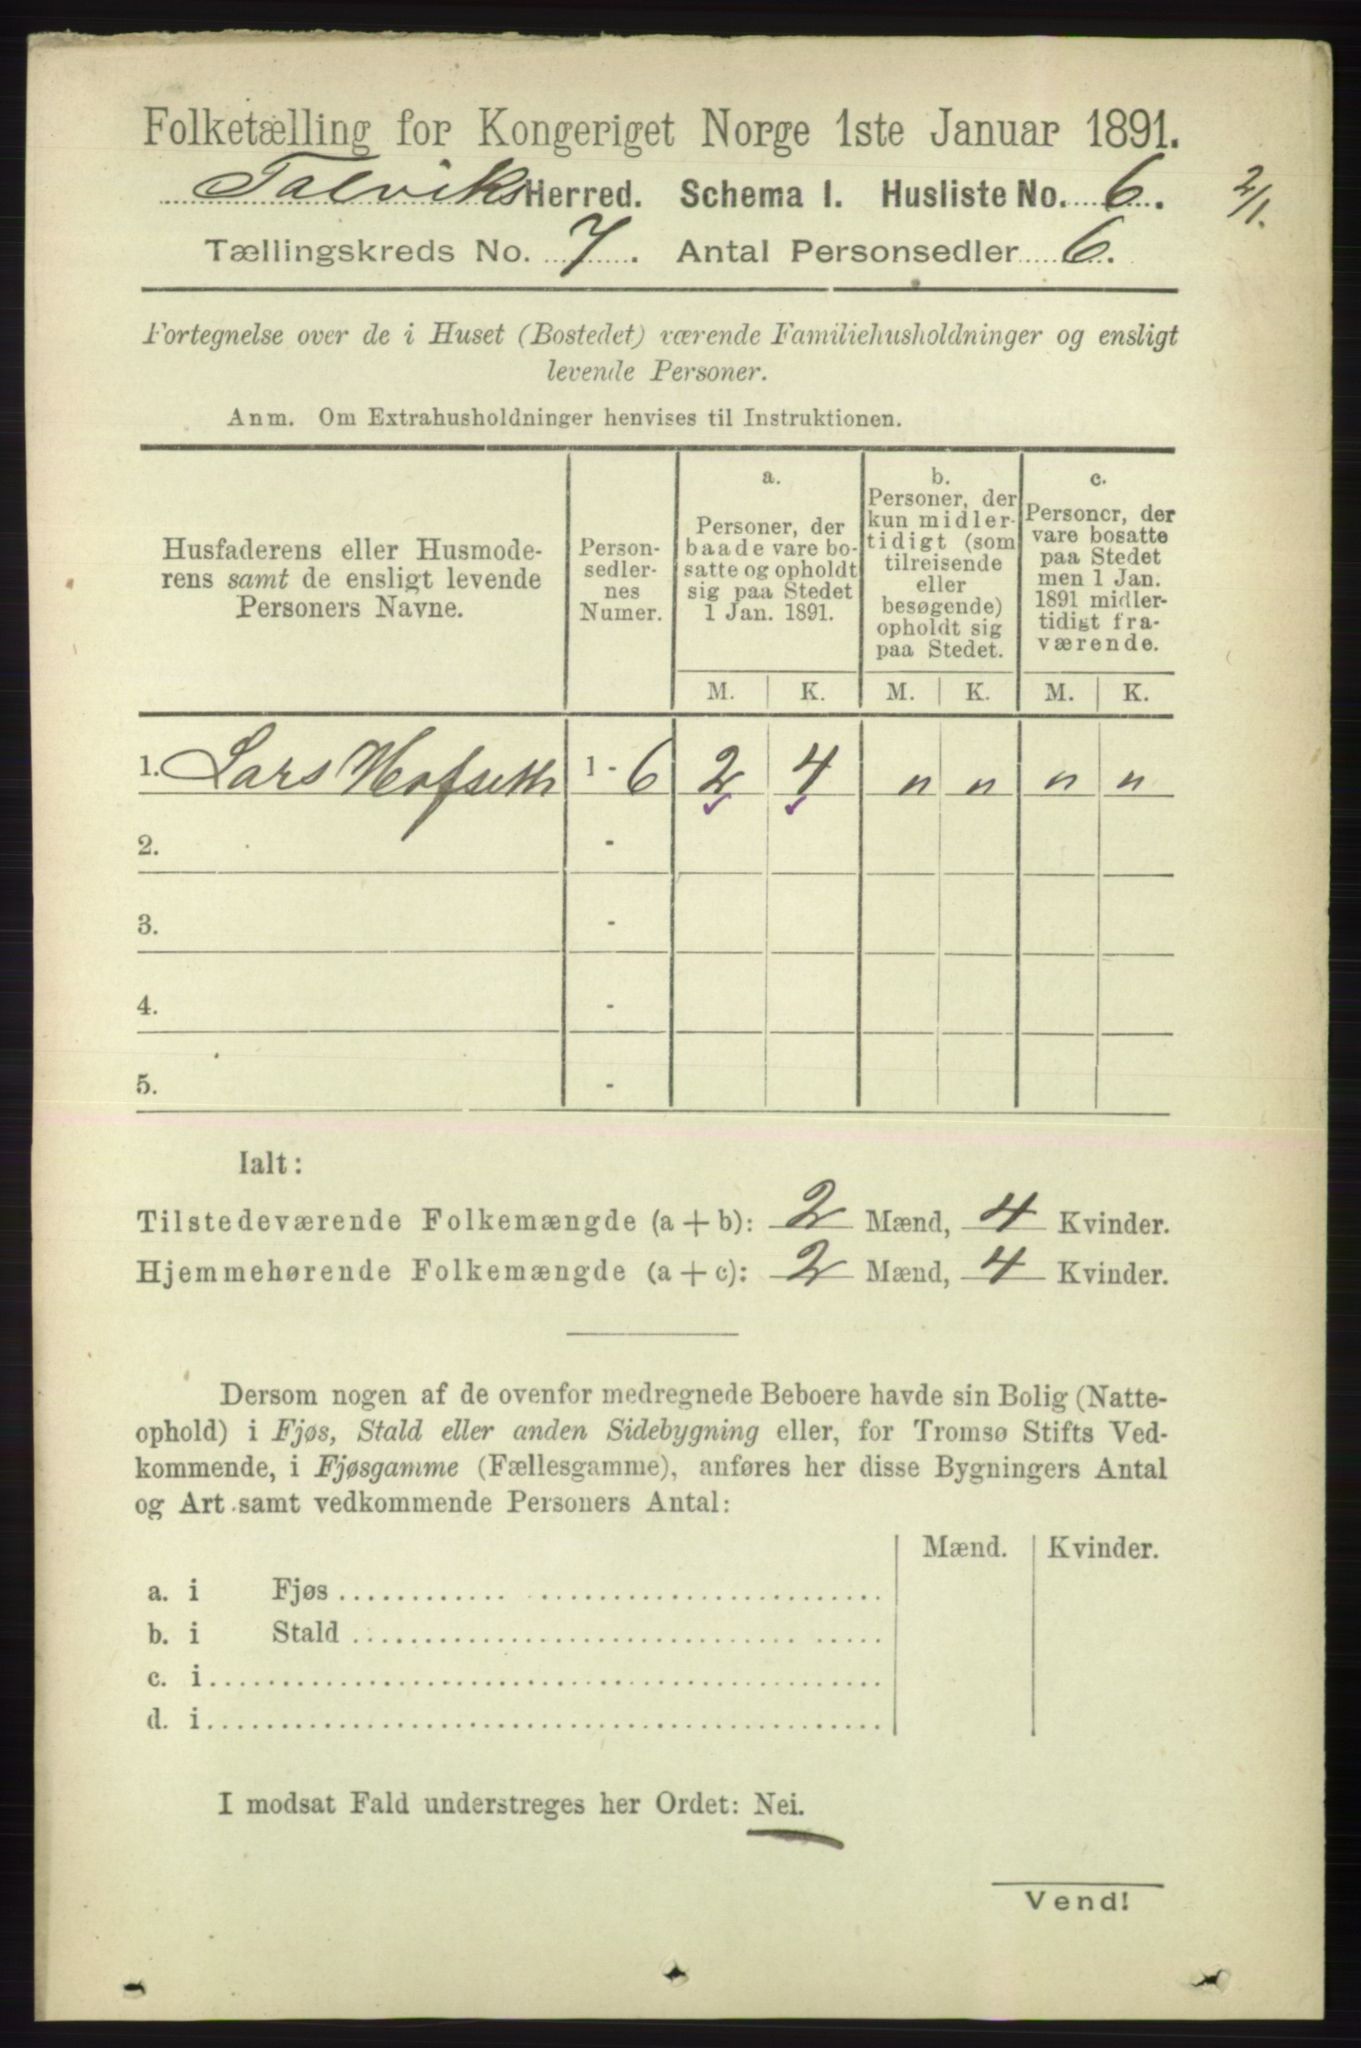 Folketælling for Kongeriget Norge 1ste Januar 1891.
Talviks Herred. Schema I. Husliste No. 6. 2/1.
Tællingskreds No. 7. Antal Personsedler 6.
Fortegnelse over de i Huset (Bostedet) værende Familiehusholdninger og ensligt
levende Personer.
Anm. Om Extrahusholdninger henvises til Instruktionen.
Husfaderens eller Husmode-
rens samt de ensligt levende
Personers Navne.
Person-
sedler-
nes
Numer.
a.
Personer, der
baade vare bo-
satte og opholdt
sig paa Stedet
1 Jan. 1891.
b.
Personer, der
kun midler-
tidigt (som
tilreisende
eller
besøgende)
opholdt sig
paa Stedet.
c.
Personer, der
vare bosatte
paa Stedet
men 1 Jan.
1891 midler-
tidigt fra-
værende.
M. K. M. K. M. K.
1. Lars Hofseth 1 - 6 2 4 " " " "
2. -
3. -
4. -
5. -
Ialt:
Tilstedeværende Folkemængde (a + b): 2 Mænd, 4 Kvinder.
Hjemmehørende Folkemængde (a + c): 2 Mænd, 4 Kvinder.
Dersom nogen af de ovenfor medregnede Beboere havde sin Bolig (Natte-
ophold) i Fjøs, Stald eller anden Sidebygning eller, for Tromsø Stifts Ved-
kommende, i Fjøsgamme (Fællesgamme), anføres her disse Bygningers Antal
og Art samt vedkommende Personers Antal:
Mænd. Kvinder.
a. i Fjøs
b. i Stald
c. i
d. i
I modsat Fald understreges her Ordet: Nei.
Vend!